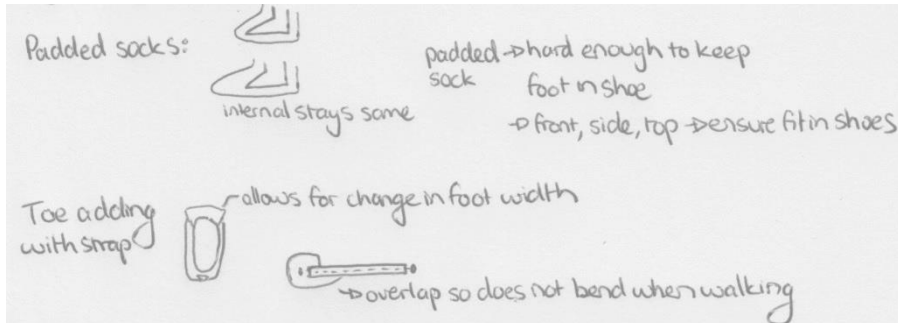 Padded socks:
internal stays same
padded → hard enough to keep
sock
foot in shoe
→ front, side, top → ensure fit in shoes
Toe adding
with strap
allows for change in foot width
→ overlap so does not bend when walking